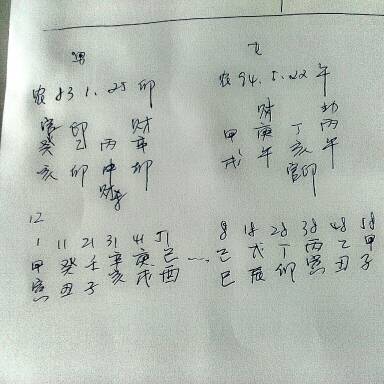 男
农 83.1.25 卯
官 印 财
癸 乙 丙 辛
亥 卯 申 卯
财
12
1 11 21 31 41 51
甲 癸 壬 辛 庚 己
寅 丑 子 亥 戌 酉
女
农 94.5.22 午
财 劫
甲 庚 丁 丙
戌 午 亥 午
官印
8 18 28 38 48 58
己 戊 丁 丙 乙 甲
巳 辰 卯 寅 丑 子